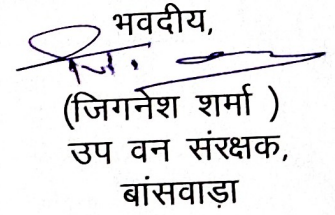 भवदीय,
(जिगनेश शर्मा )
उप वन संरक्षक,
बांसवाड़ा